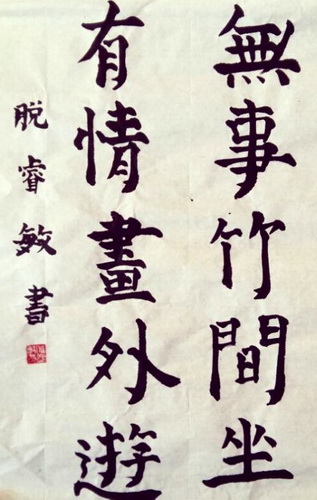 無事竹間坐
有情畫外遊
脱睿敏書